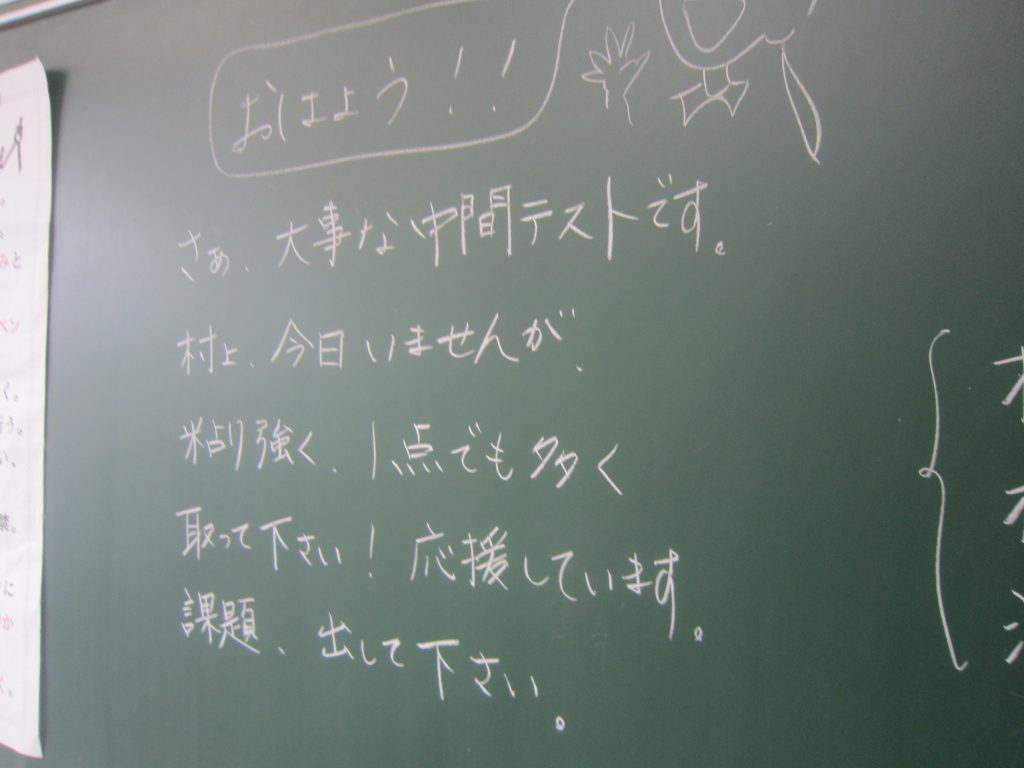 おはよう!!
さぁ、大事な中間テストです。
村上、今日いませんが、
粘り強く、1点でも多く
取って下さい!応援しています。
課題、出して下さい。
みと
ペン
く。
う。
い、
禁。
に
か